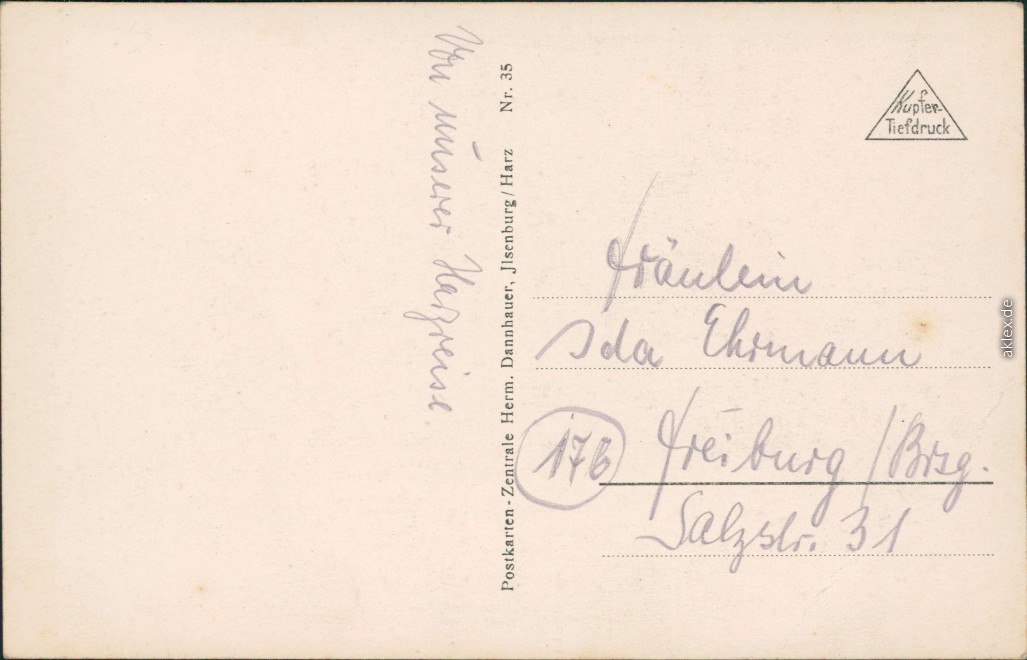 Von unserer Harzreise.
Postkarten-Zentrale Herm. Dannhauer, Jlsenburg/Harz Nr. 35
Kupfer-
Tiefdruck
Fräulein
Ida Ehrmann
17b Freiburg/Brsg.
Salzstr. 31
aklex.de